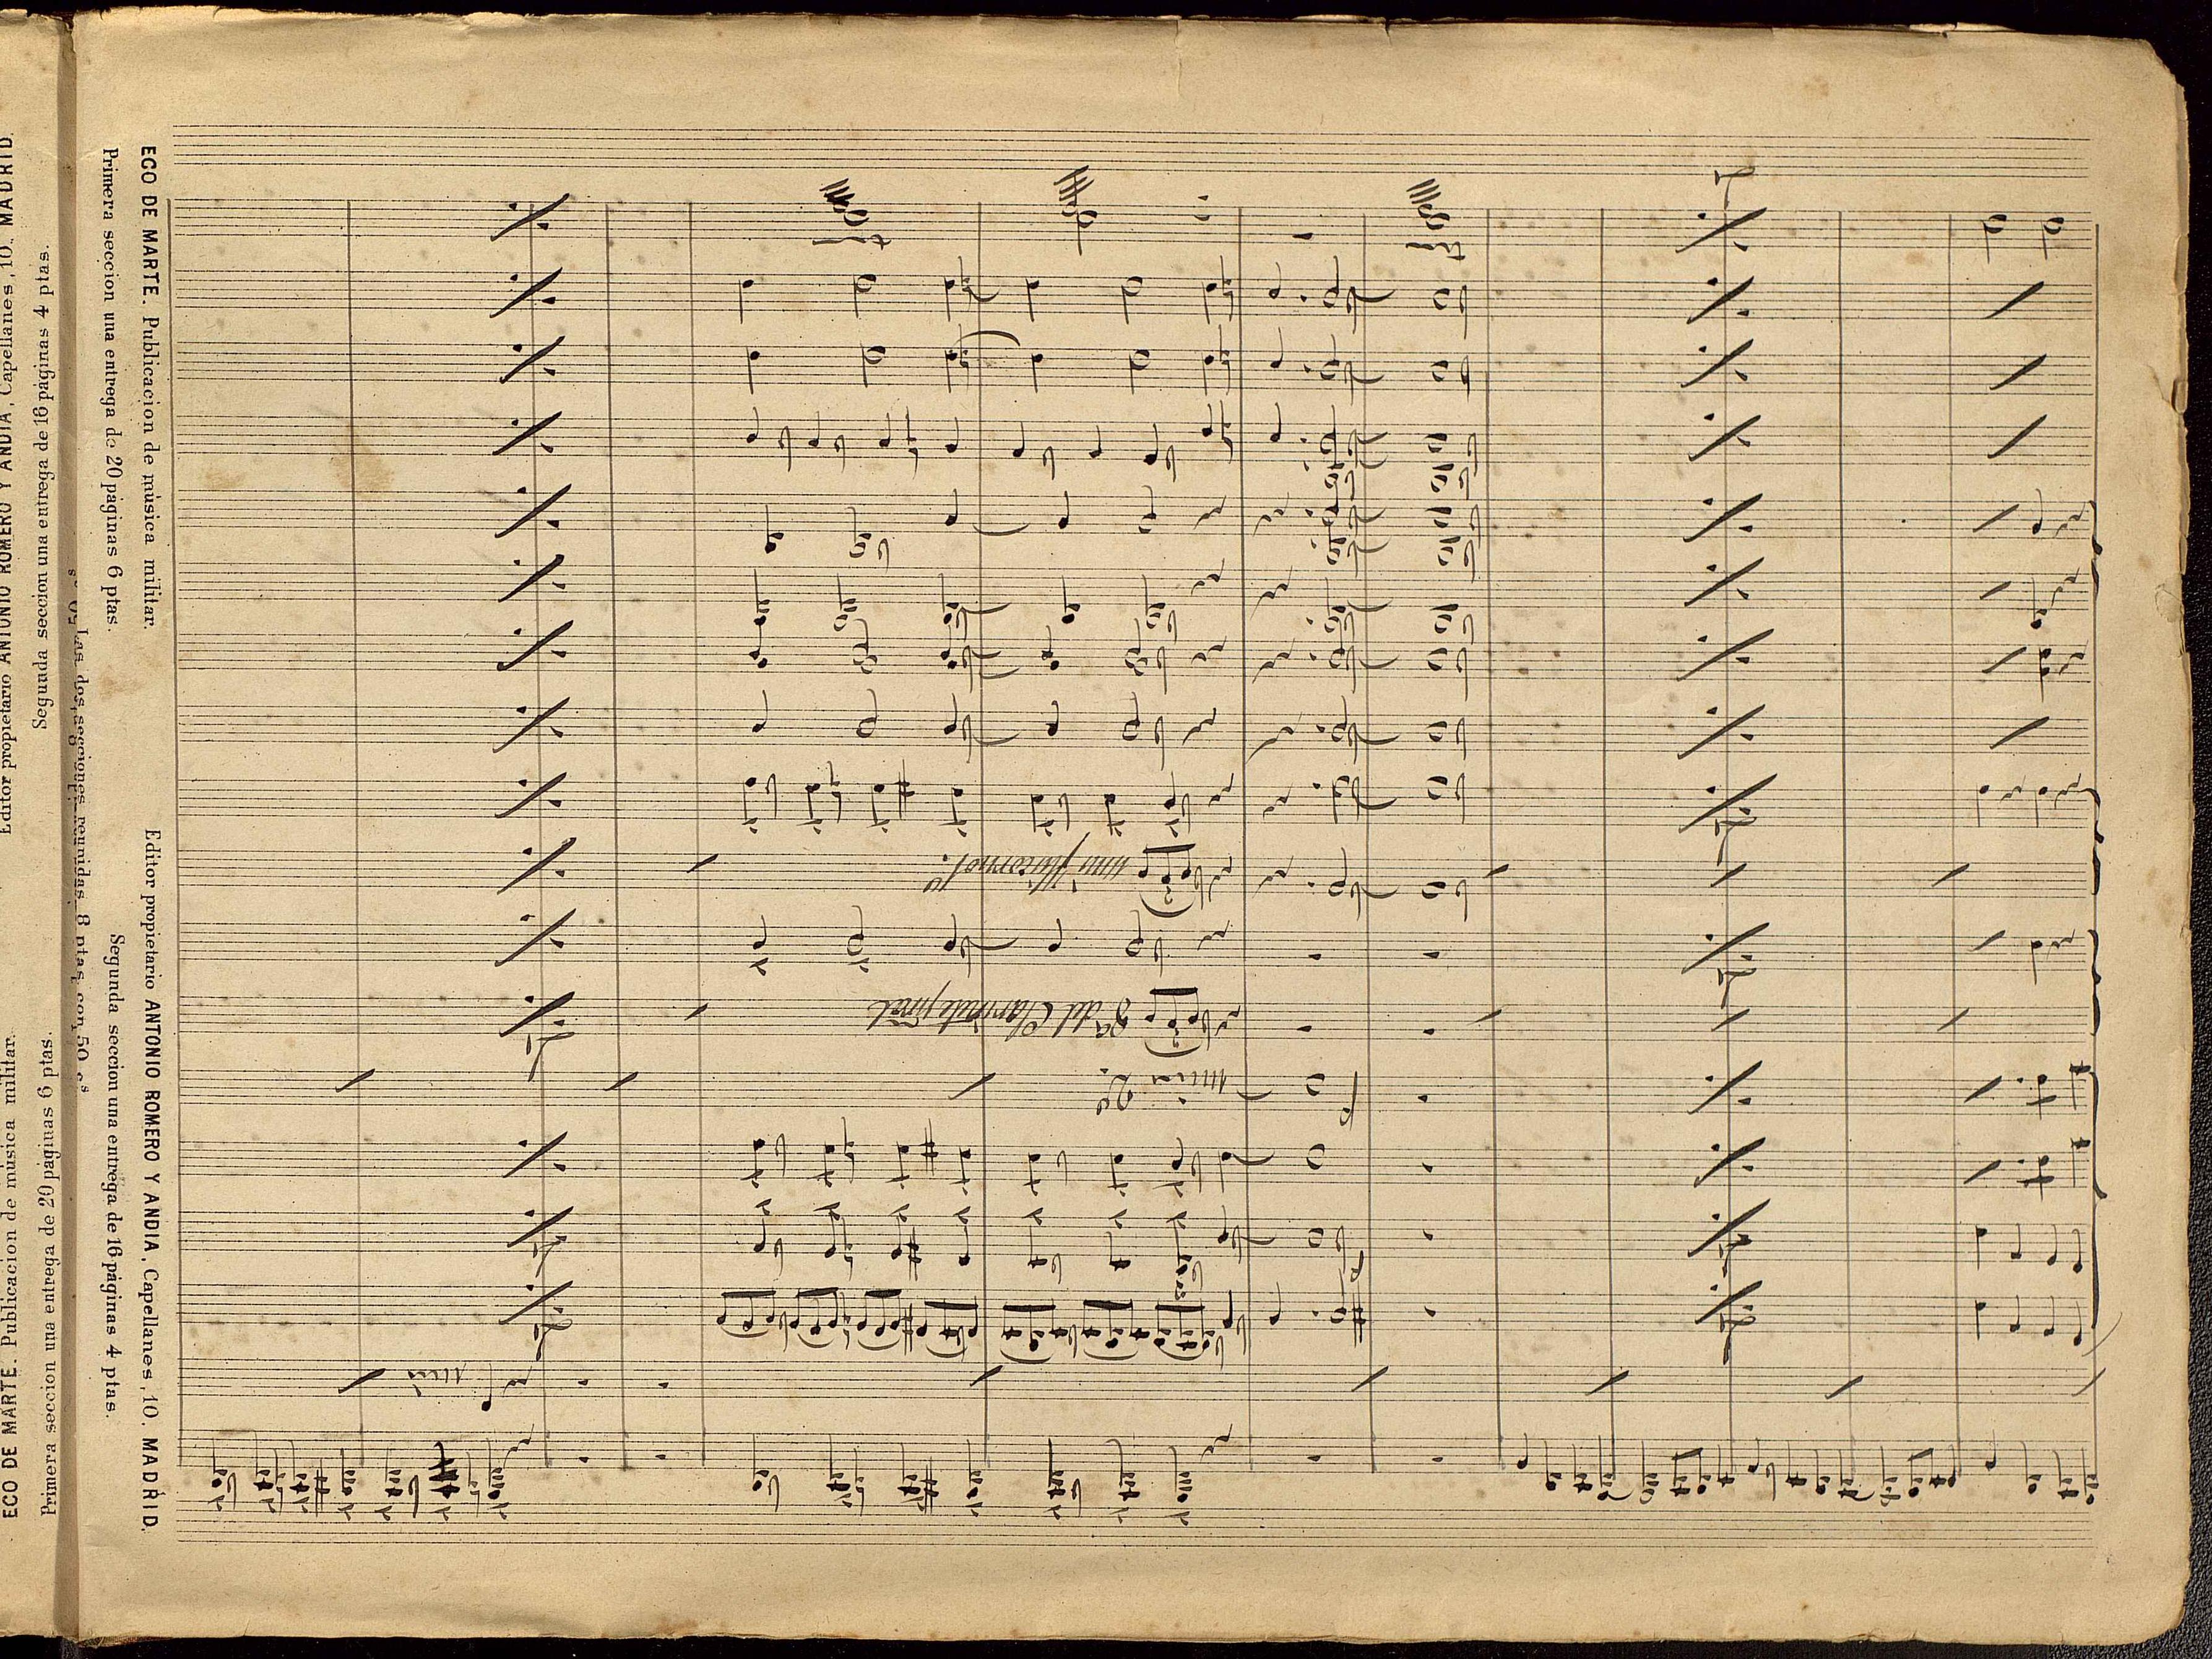 ECO DE MARTE. Publicacion de música militar.
Primera seccion una entrega de 20 páginas 6 ptas.
Editor propietario ANTONIO ROMERO Y ANDIA, Capellanes, 10. MADRID.
Segunda seccion una entrega de 16 páginas 4 ptas.
Las dos secciones reunidas 8 ptas. con 50 cs
ECO DE MARTE. Publicacion de música militar.
Primera seccion una entrega de 20 páginas 6 ptas.
Editor propietario ANTONIO ROMERO Y ANDIA, Capellanes, 10. MADRID.
Segunda seccion una entrega de 16 páginas 4 ptas.
unis
unis 2º
8ª del